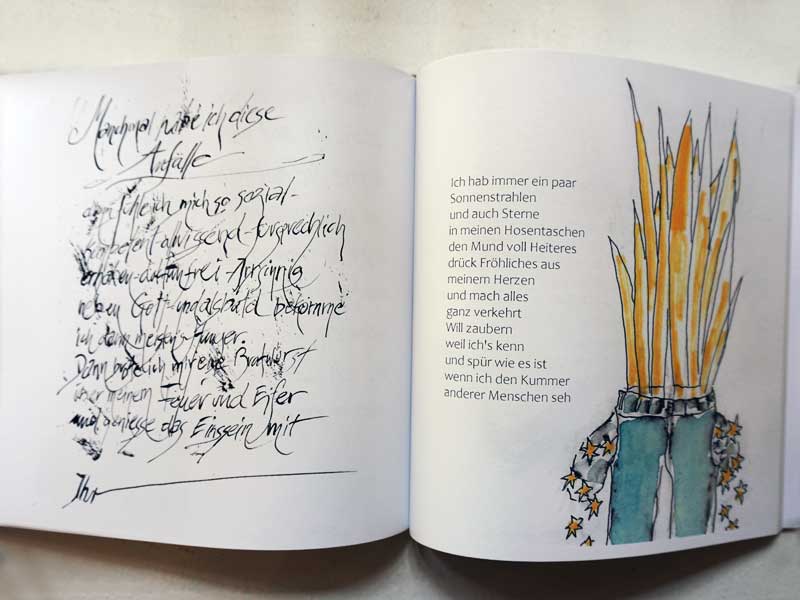 Manchmal habe ich diese
Anfälle
dann fühle ich mich so sozial-
kompetent-allwissend-unsprechlich
erhaben-duftfrei-
neben Gott- und alsbald bekomme
ich dann meistens Hunger.
Dann brate ich mir eine Bratwurst
über meinem Feuer und Eifer
und geniesse das Einssein mit
Ihr
Ich hab immer ein paar
Sonnenstrahlen
und auch Sterne
in meinen Hosentaschen
den Mund voll Heiteres
drück Fröhliches aus
meinem Herzen
und mach alles
ganz verkehrt
Will zaubern
weil ich's kenn
und spür wie es ist
wenn ich den Kummer
anderer Menschen seh